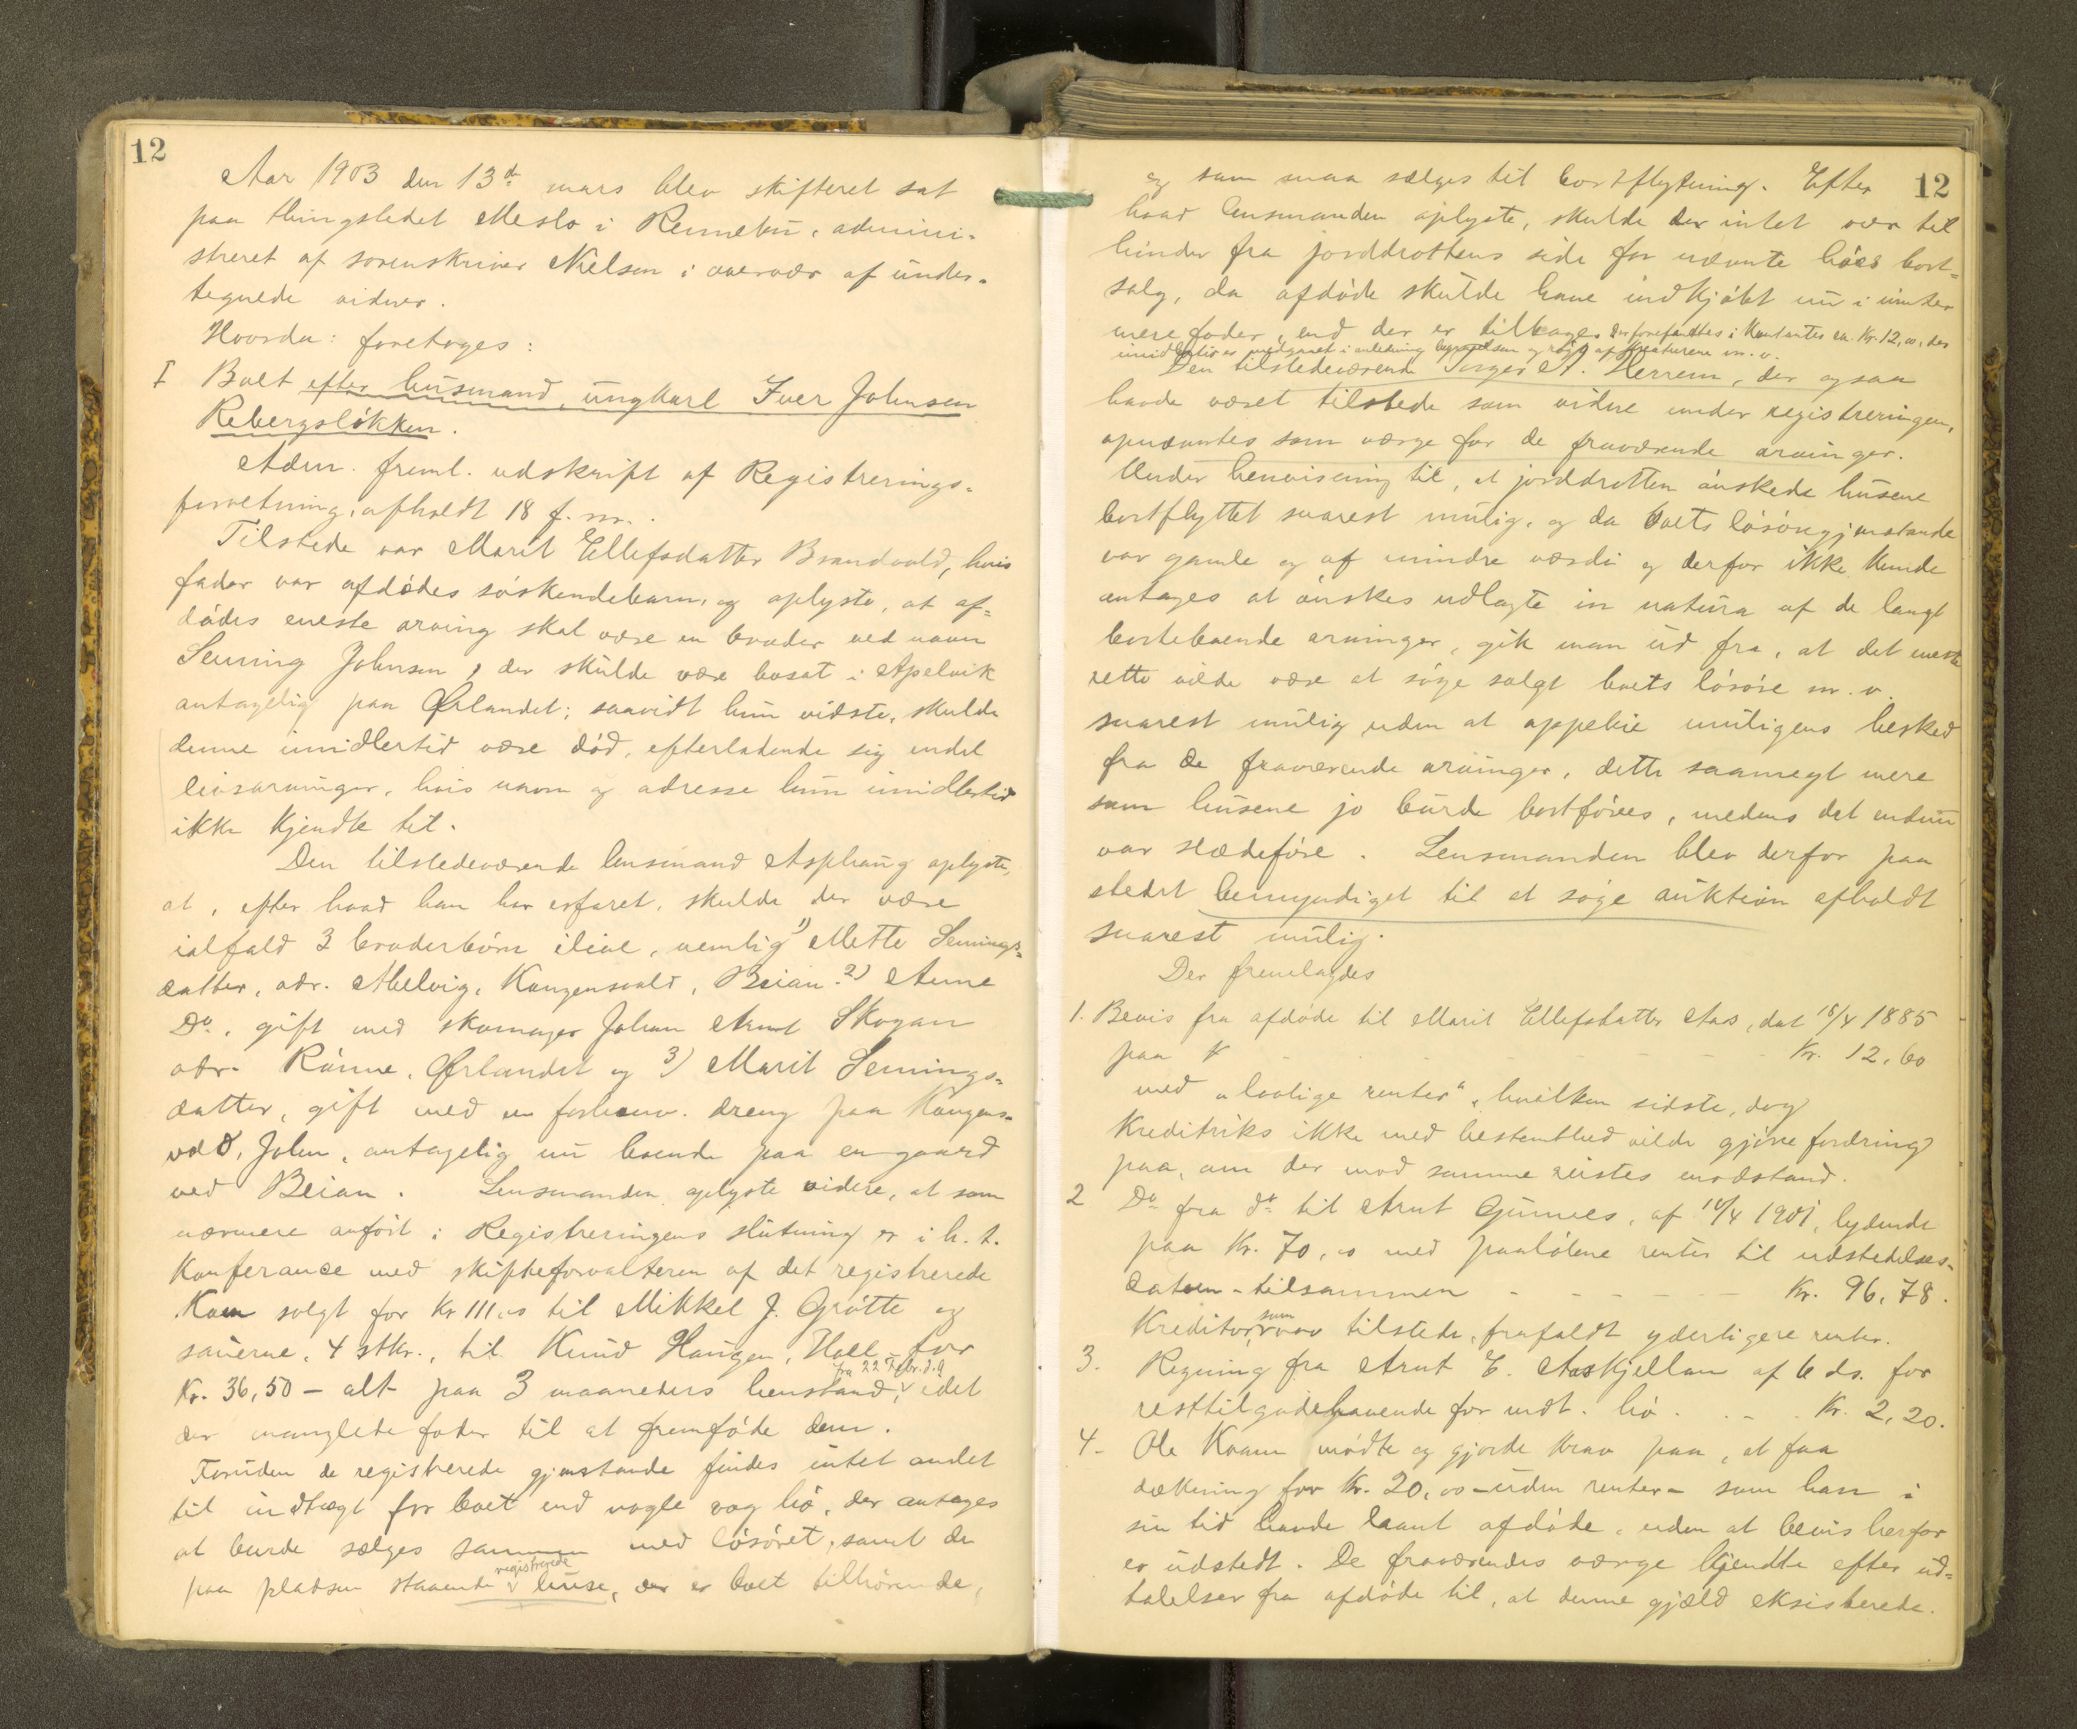 12
Aar 1903 den 13d mars blev skifteret sat
paa thingstedet Meslo i Rennebu, admini-
streret af sorenskriver Nielsen i overvær af under-
tegnede vidner.
Hvorda: foretoges:
I Boet efter husmand, ungkarl Iver Johnsen
Rebergsløkken.
Adm. freml. udskrift af Registrerings-
forretning, afholdt 18 f. m.
Tilstede var Marit Ellefsdatter Brandvold, hvis
fader var afdødes søskendebarn, og oplyste, at af-
dødes eneste arving skal være en broder ved navn
Senning Johnsen, der skulde være bosat i Apelvik
antagelig paa Ørlandet; saavidt hun vidste, skulde
denne imidlertid være død, efterladende sig endel
livsarvinger, hvis navn og adresse hun imidlertid
ikke kjendte til.
Den tilstedeværende lensmand Asphaug oplyste,
at, efter hvad han har erfaret, skulde der være
ialfald 3 broderbørn ilive, nemlig 1) Mette Sennings-
datter, adr. Melvig, Kongensvold, Beian. 2) Anne
Do, gift med skomager Johan Arnt Skogan
adr. Rønne, Ørlandet og 3) Marit Sennings-
datter, gift med en forhenv. dreng paa Kongens-
vold, John, antagelig nu boende paa en gaard
ved Beian. Lensmanden oplyste videre, at som
nærmere anført i Registreringens slutning er i h. t.
Konferance med skifteforvalteren af det registrerede
Koen solgt for Kr 111,00 til Mikkel J. Grøtte og
sauerne, 4 stkr., til Knud Haugen, Hoel for
Kr. 36,50 - alt paa 3 maaneders henstand, fra 22 Febr. d. A. idet
der manglede foder til at fremføde dem.
Foruden de registrerede gjenstande findes intet andet
til indtægt for boet end nogle vog hø, der antages
at burde sælges sammen med løsøret, samt de
paa pladsen staaende registrerede huse, der er boet tilhørende,
12
og som maa sælges til bortflytning. Efter
hvad lensmanden oplyste, skulde der intet være til
hinder fra jorddrottens side for nævnte høes bort-
salg, da afdøde skulde have indkjøbt nu i vinter
mere foder, end der er tilbage. Der forefandtes i Kontanter ca. Kr. 12,00, der
imidlertid er medgaaet i anledning begravelsen og røgt af kreaturene m. v.
Den tilstedeværende Torger A. Herrem, der ogsaa
havde været tilstede som vidne under registreringen,
opnævntes som værge for de fraværende arvinger.
Under henvisning til, at jorddrotten ønskede husene
bortflyttet snarest mulig, og da boets løsøregjenstande
var gamle og af mindre værdi og derfor ikke kunde
antages at ønskes udlagte in natura af de langt
borteboende arvinger, gik man ud fra, at det meste
rette vilde være at søge solgt boets løsøre m. v.
snarest mulig uden at oppebie muligens besked
fra de fraværende arvinger, dette saameget mere
som husene jo burde bortføres, medens det endnu
var slædeføre. Lensmanden blev derfor paa
stedet bemyndiget til at søge auktion afholdt
snarest mulig.
Der fremlagdes
1. Bevis fra afdøde til Marit Ellefsdatter Aas, dat 18/4 1885
paa - - - - - - - Kr. 12,60
med „lovlige renter“, hvilken sidste, dog
Kreditriks ikke med bestemthed vilde gjøre fordring
paa, om der mod samme reistes modstand.
2 Do fra do til Arnt Gunnes, af 10/4 1901, lydende
paa Kr. 70,00 med paaløbne renter til udstedelses-
datoen - tilsammen - - - - - - Kr. 96,78.
Kreditor, som var tilstede, frafaldt yderligere renter.
3. Regning fra Arnt E. Aaskjellan af 6 ds. for
resttilgodehavende for indt. hø . . - . Kr. 2,20.
4. Ole Kvam mødte og gjorde krav paa, at faa
dækning for Kr. 20,00 - uden renter - som han i
sin tid havde laant afdøde, uden at bevis herfor
er udstedt. De fraværendes værge kjendte efter ud-
talelser fra afdøde til, at denne gjæld eksisterede.